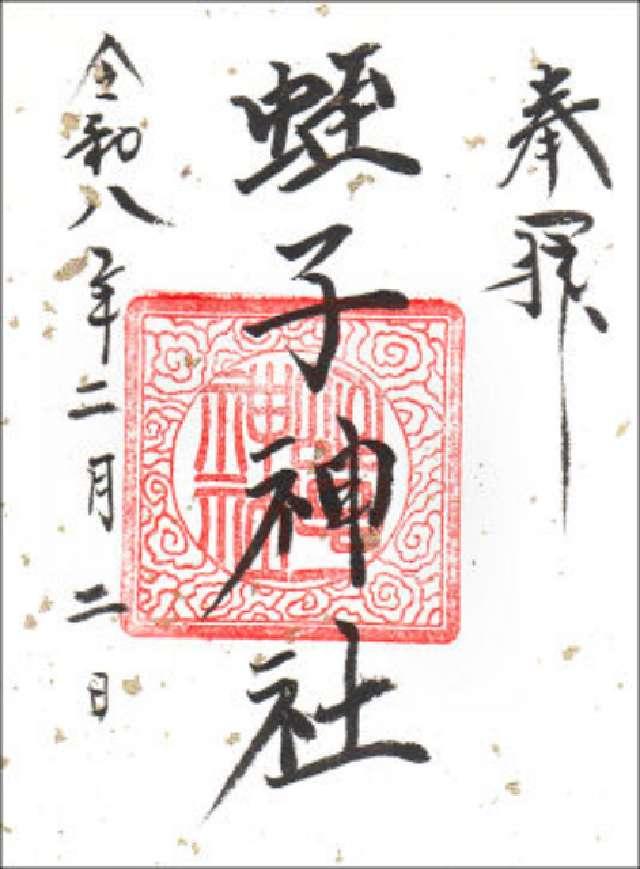 奉拝
蛭子神社
令和八年二月二日